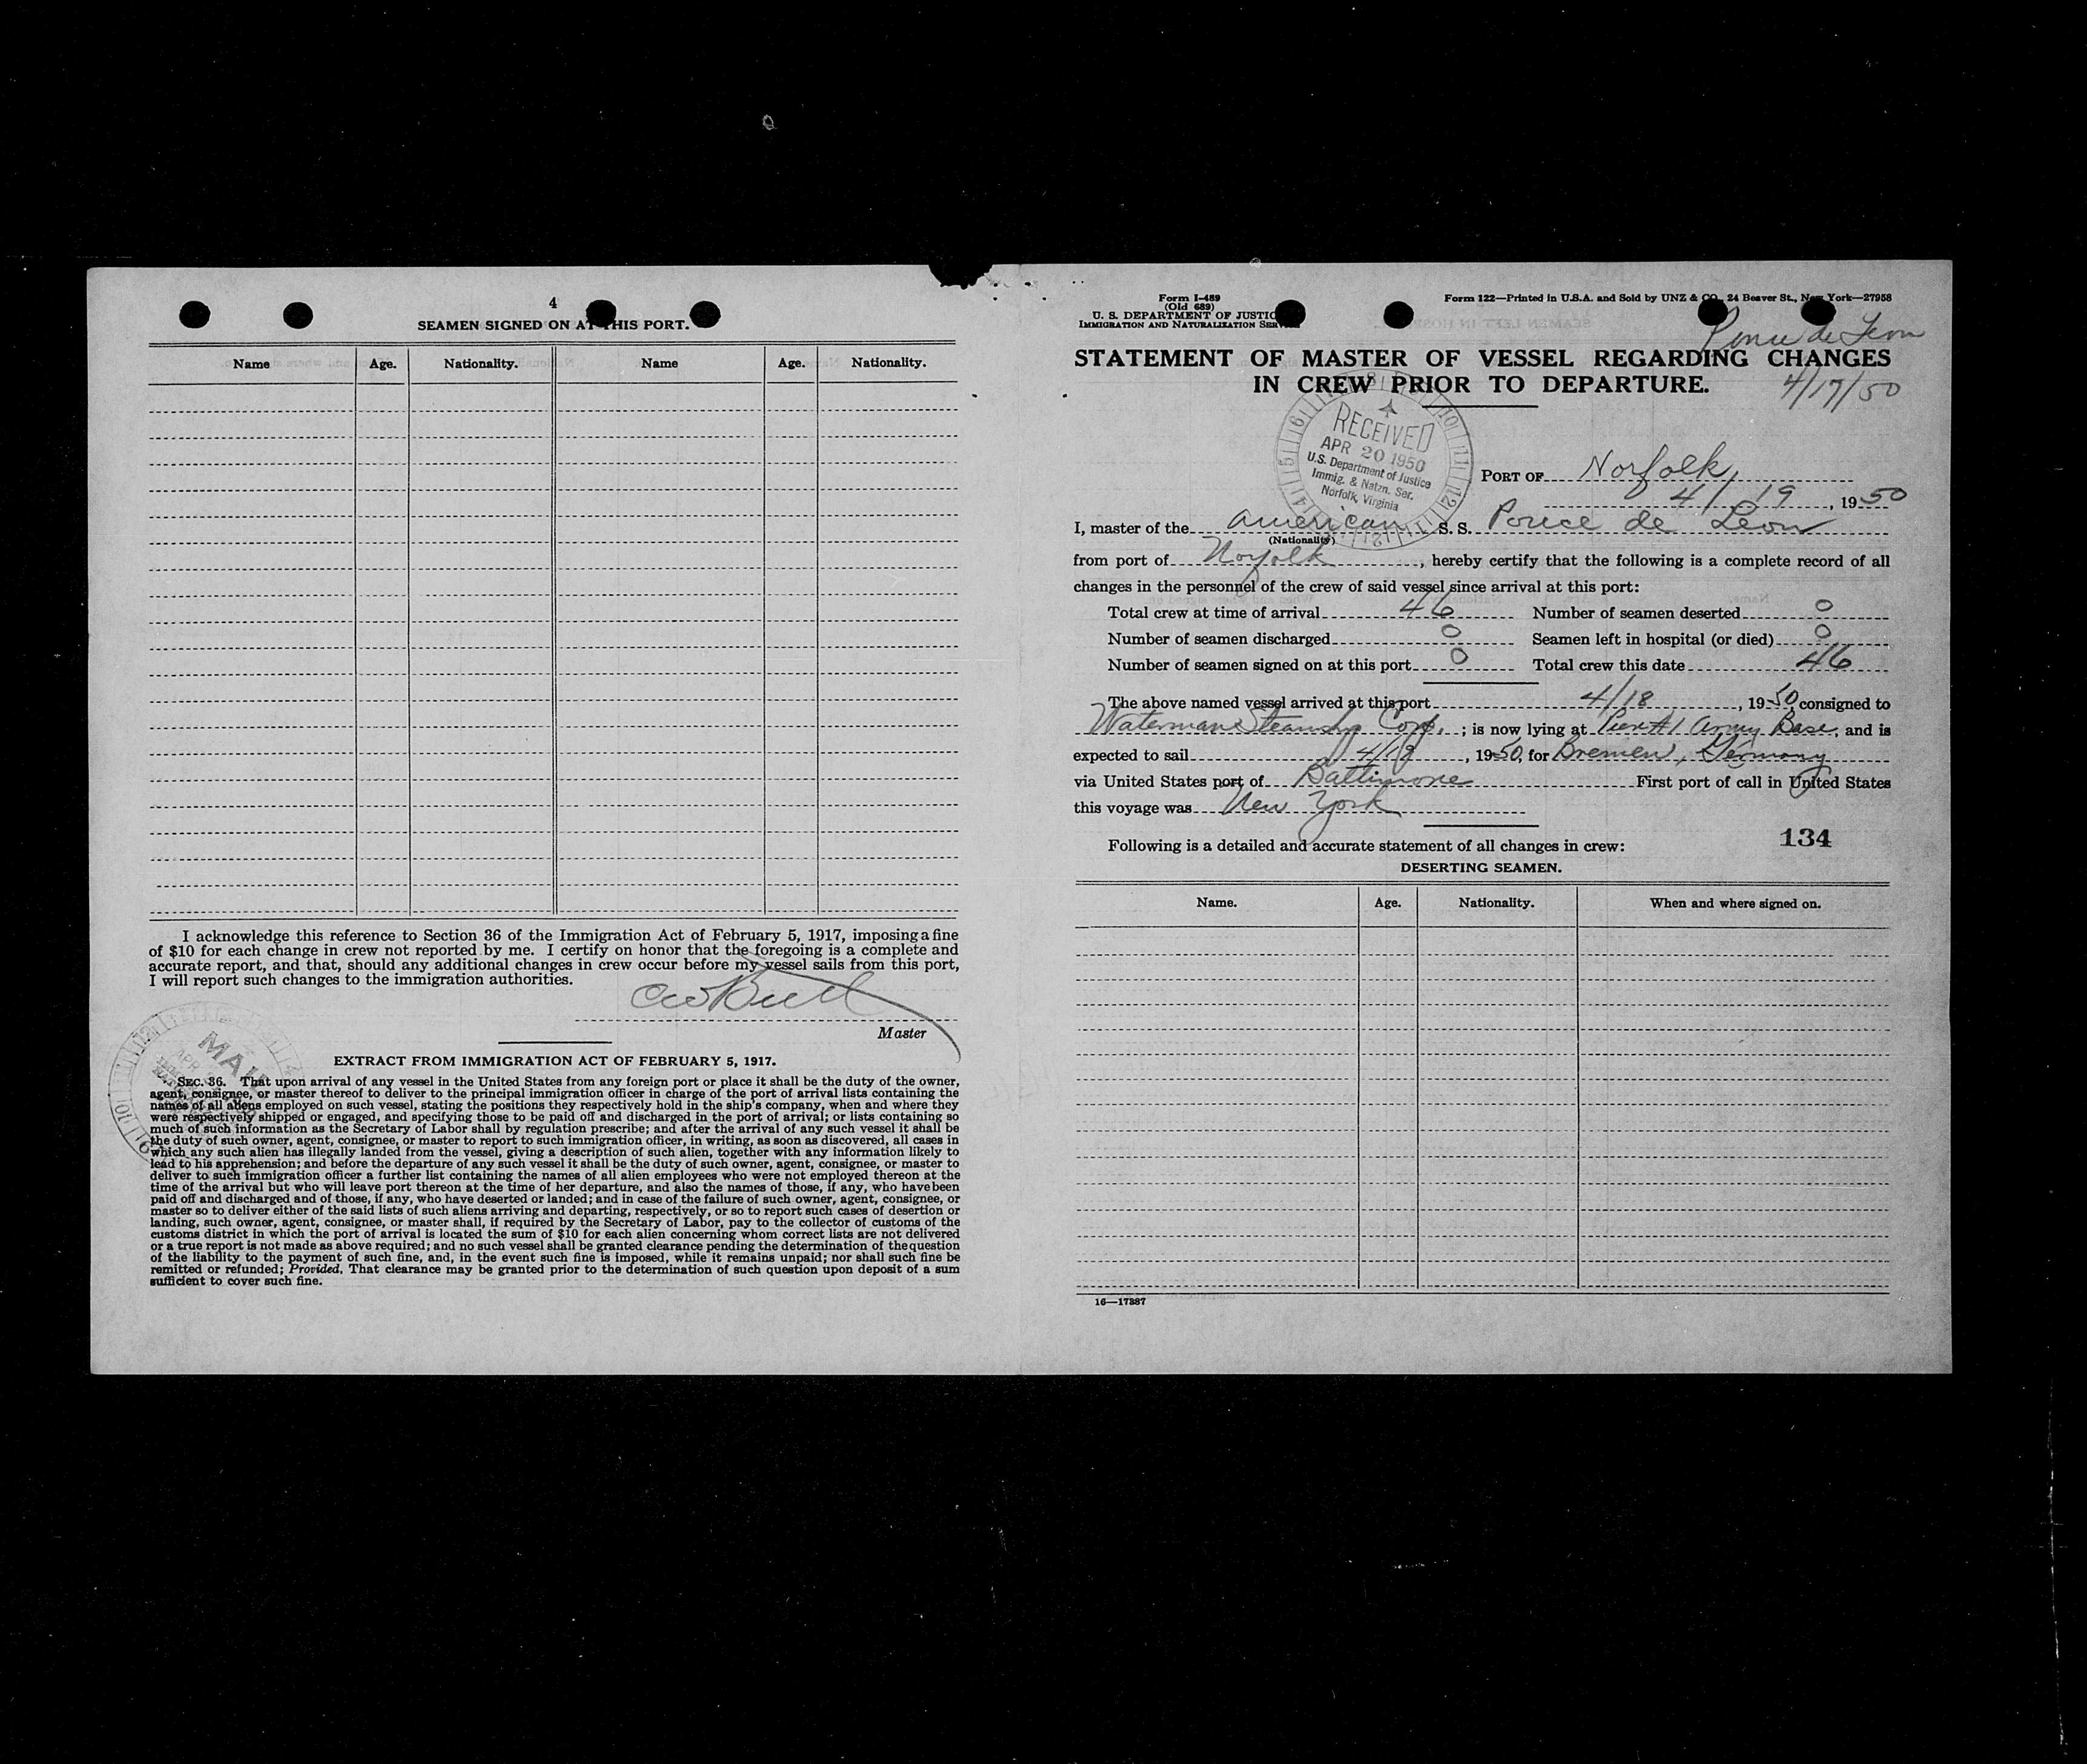 4
SEAMEN SIGNED ON AT THIS PORT.
Name Age. Nationality. Name Age. Nationality.
I acknowledge this reference to Section 36 of the Immigration Act of February 5, 1917, imposing a fine
of $10 for each change in crew not reported by me. I certify on honor that the foregoing is a complete and
accurate report, and that, should any additional changes in crew occur before my vessel sails from this port,
I will report such changes to the immigration authorities.
Master
MAIL
APR
EXTRACT FROM IMMIGRATION ACT OF FEBRUARY 5, 1917.
SEC. 36. That upon arrival of any vessel in the United States from any foreign port or place it shall be the duty of the owner,
agent, consignee, or master thereof to deliver to the principal immigration officer in charge of the port of arrival lists containing the
names of all aliens employed on such vessel, stating the positions they respectively hold in the ship's company, when and where they
were respectively shipped or engaged, and specifying those to be paid off and discharged in the port of arrival; or lists containing so
much of such information as the Secretary of Labor shall by regulation prescribe; and after the arrival of any such vessel it shall be
the duty of such owner, agent, consignee, or master to report to such immigration officer, in writing, as soon as discovered, all cases in
which any such alien has illegally landed from the vessel, giving a description of such alien, together with any information likely to
lead to his apprehension; and before the departure of any such vessel it shall be the duty of such owner, agent, consignee, or master to
deliver to such immigration officer a further list containing the names of all alien employees who were not employed thereon at the
time of the arrival but who will leave port thereon at the time of her departure, and also the names of those, if any, who have been
paid off and discharged and of those, if any, who have deserted or landed; and in case of the failure of such owner, agent, consignee, or
master so to deliver either of the said lists of such aliens arriving and departing, respectively, or so to report such cases of desertion or
landing, such owner, agent, consignee, or master shall, if required by the Secretary of Labor, pay to the collector of customs of the
customs district in which the port of arrival is located the sum of $10 for each alien concerning whom correct lists are not delivered
or a true report is not made as above required; and no such vessel shall be granted clearance pending the determination of the question
of the liability to the payment of such fine, and, in the event such fine is imposed, while it remains unpaid; nor shall such fine be
remitted or refunded; Provided, That clearance may be granted prior to the determination of such question upon deposit of a sum
sufficient to cover such fine.
Form I-489
(Old 689)
U. S. DEPARTMENT OF JUSTIC
IMMIGRATION AND NATURALIZATION SER
Form 122—Printed in U.S.A. and Sold by UNZ & CO., 24 Beaver St., New York—27958
Ponce de Leon
STATEMENT OF MASTER OF VESSEL REGARDING CHANGES
IN CREW PRIOR TO DEPARTURE.
4/17/50
RECEIVED
APR 20 1950
U.S. Department of Justice
Immig. & Natzn. Ser.
Norfolk, Virginia
PORT OF Norfolk,
4/19, 1950
I, master of the American S. S. Ponce de Leon
(Nationality)
from port of Norfolk, hereby certify that the following is a complete record of all
changes in the personnel of the crew of said vessel since arrival at this port:
Total crew at time of arrival 46 Number of seamen deserted 0
Number of seamen discharged 0 Seamen left in hospital (or died) 0
Number of seamen signed on at this port 0 Total crew this date 46
The above named vessel arrived at this port 4/18, 1950, consigned to
Waterman Steamship Corp.; is now lying at Pier #1 Army Base, and is
expected to sail 4/19, 1950, for Bremen, Germany
via United States port of Baltimore First port of call in United States
this voyage was New York
134
Following is a detailed and accurate statement of all changes in crew:
DESERTING SEAMEN.
Name. Age. Nationality. When and where signed on.
16—17887